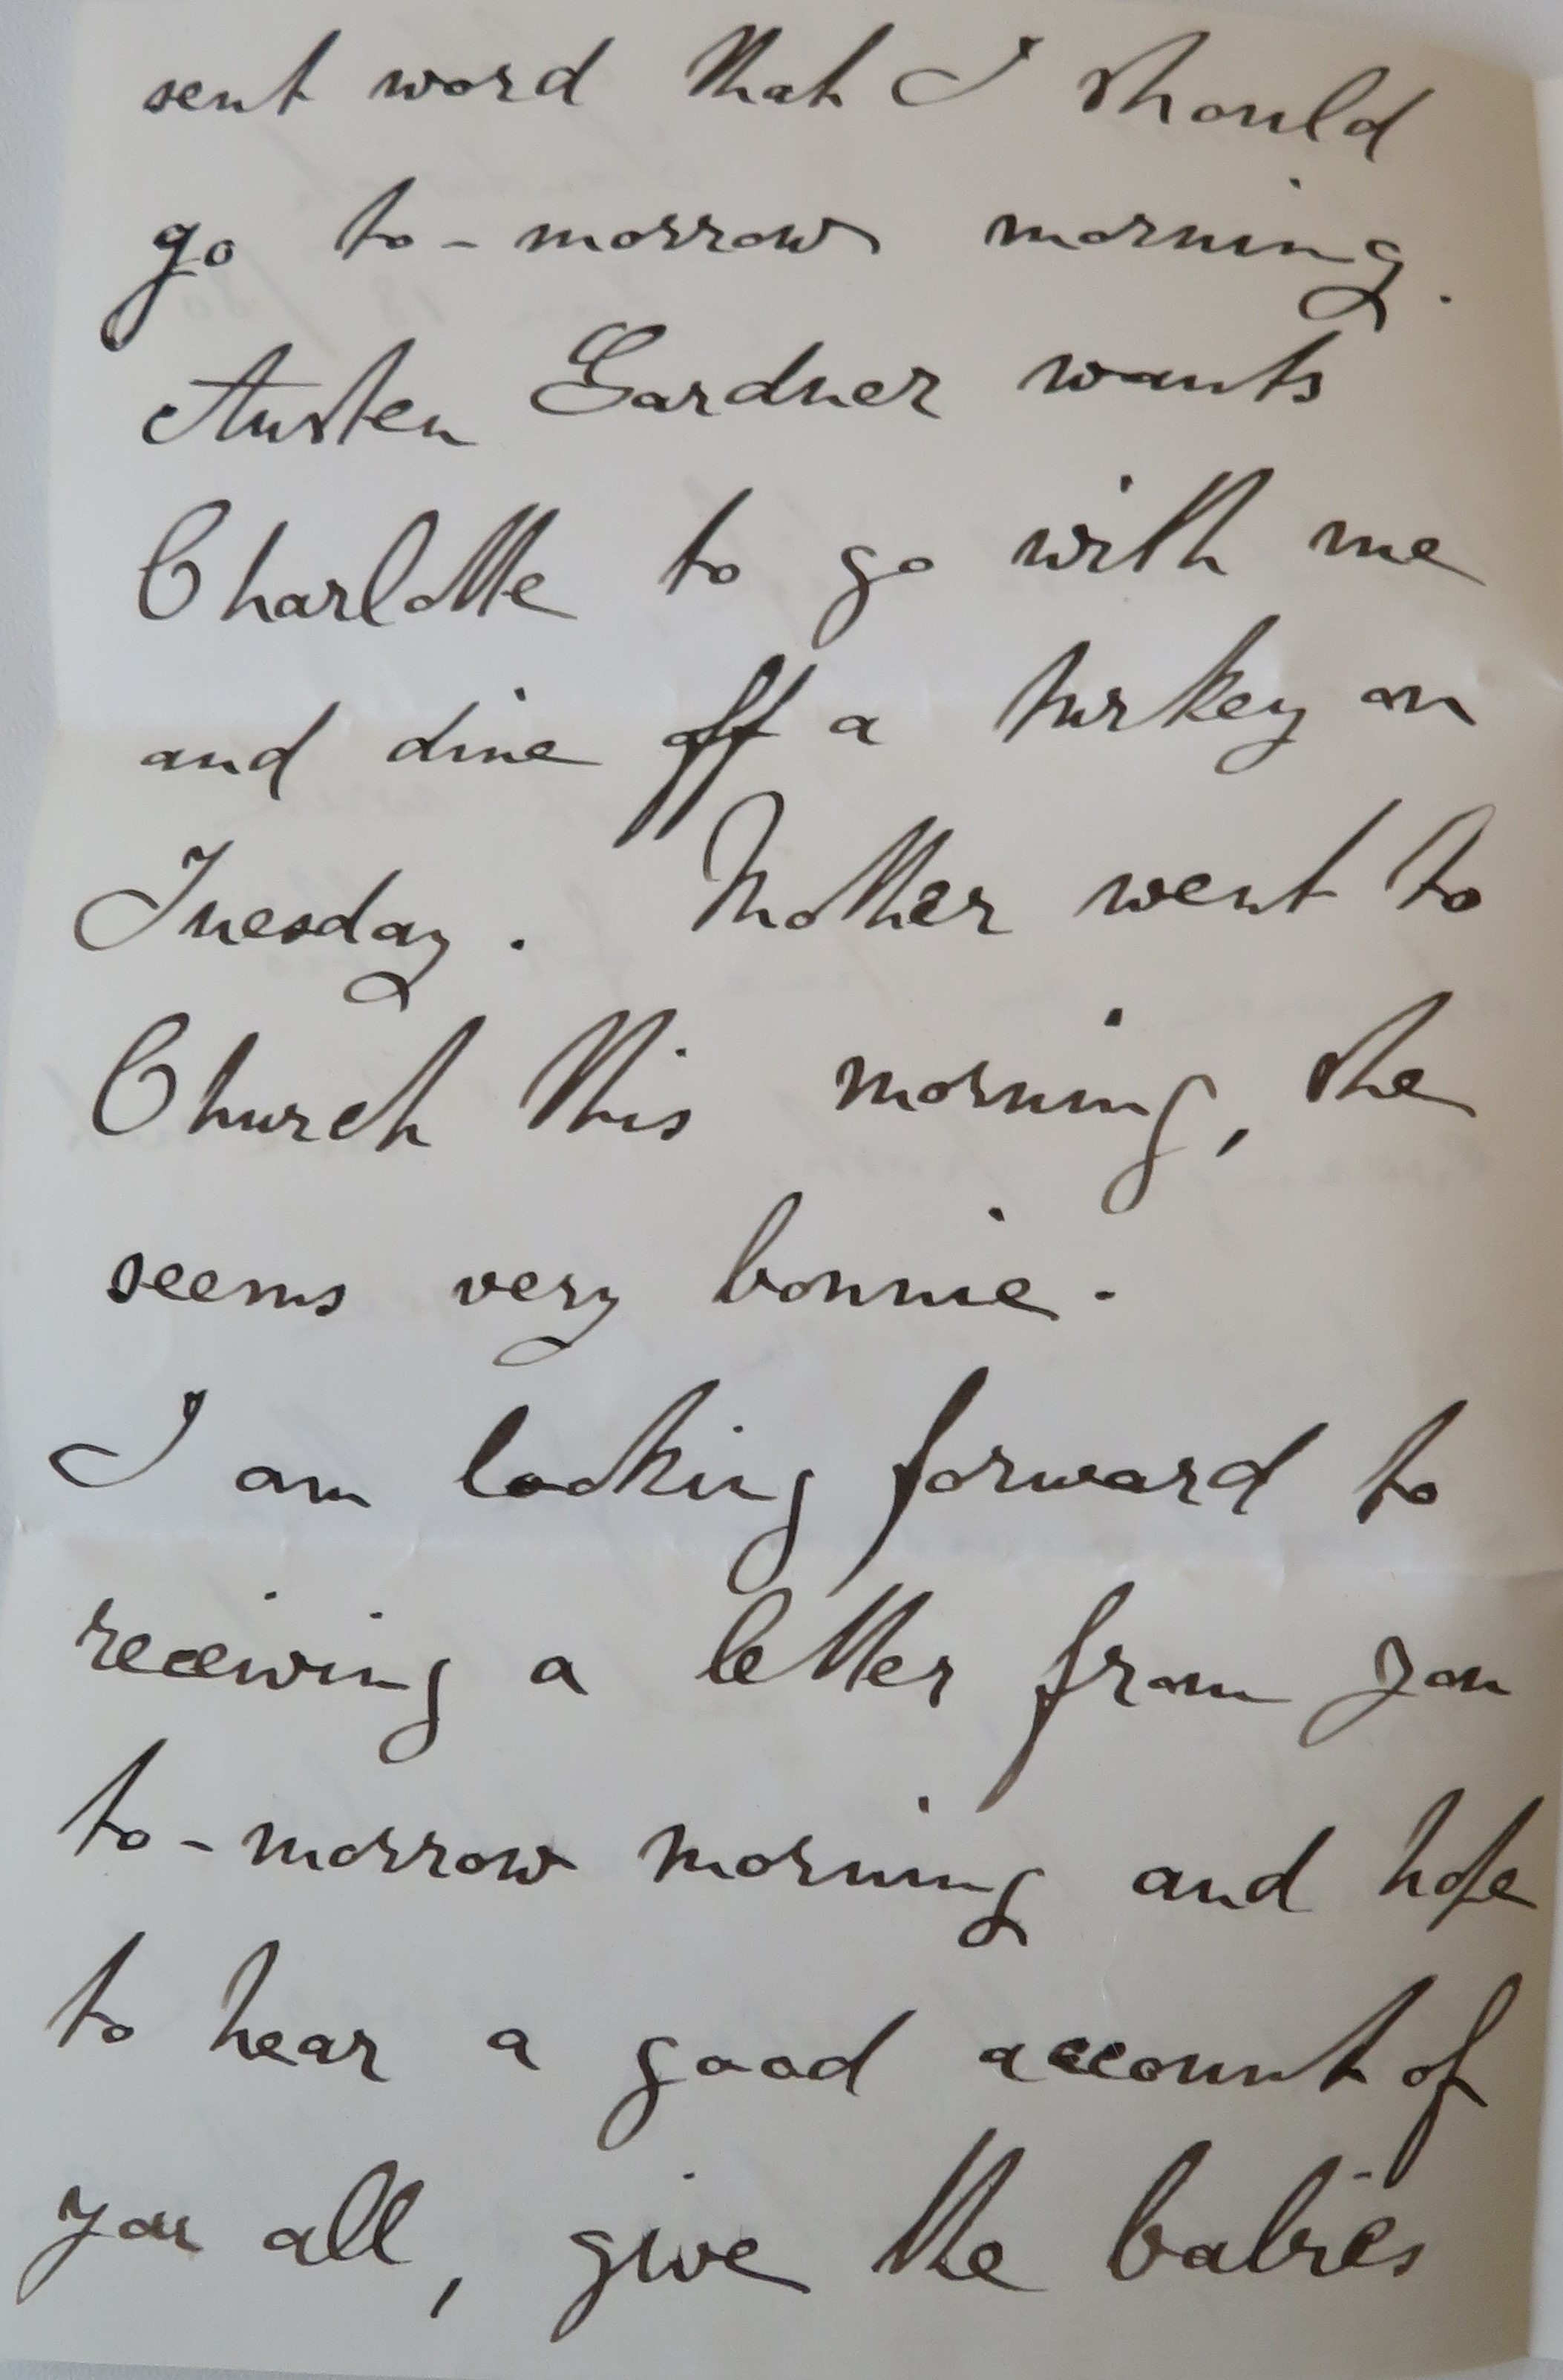 sent word that I should
go to-morrow morning.
Austen Gardner wants
Charlotte to go with me
and dine off a turkey on
Tuesday. Mother went to
Church this morning, she
seems very bonnie.
I am looking forward to
receiving a letter from you
to-morrow morning and hope
to hear a good account of
you all, give the babies